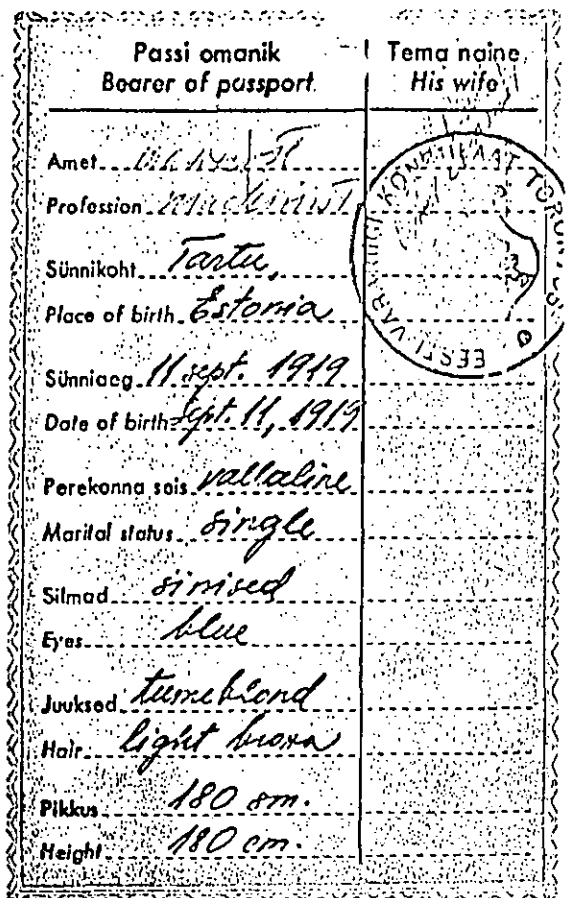 Passi omanik
Bearer of passport
Tema naine
His wife
Amet
Profession machinist
Sünnikoht Tartu,
Place of birth Estonia
Sünniaeg 11 sept. 1919
Date of birth Sept. 11, 1919
Perekonna seis vallaline
Marital status single
Silmad sinised
Eyes blue
Juuksed tumeblond
Hair light brown
Pikkus 180 sm.
Height 180 cm.
EESTI VABARIIGI KONSULAAT TORONTOS